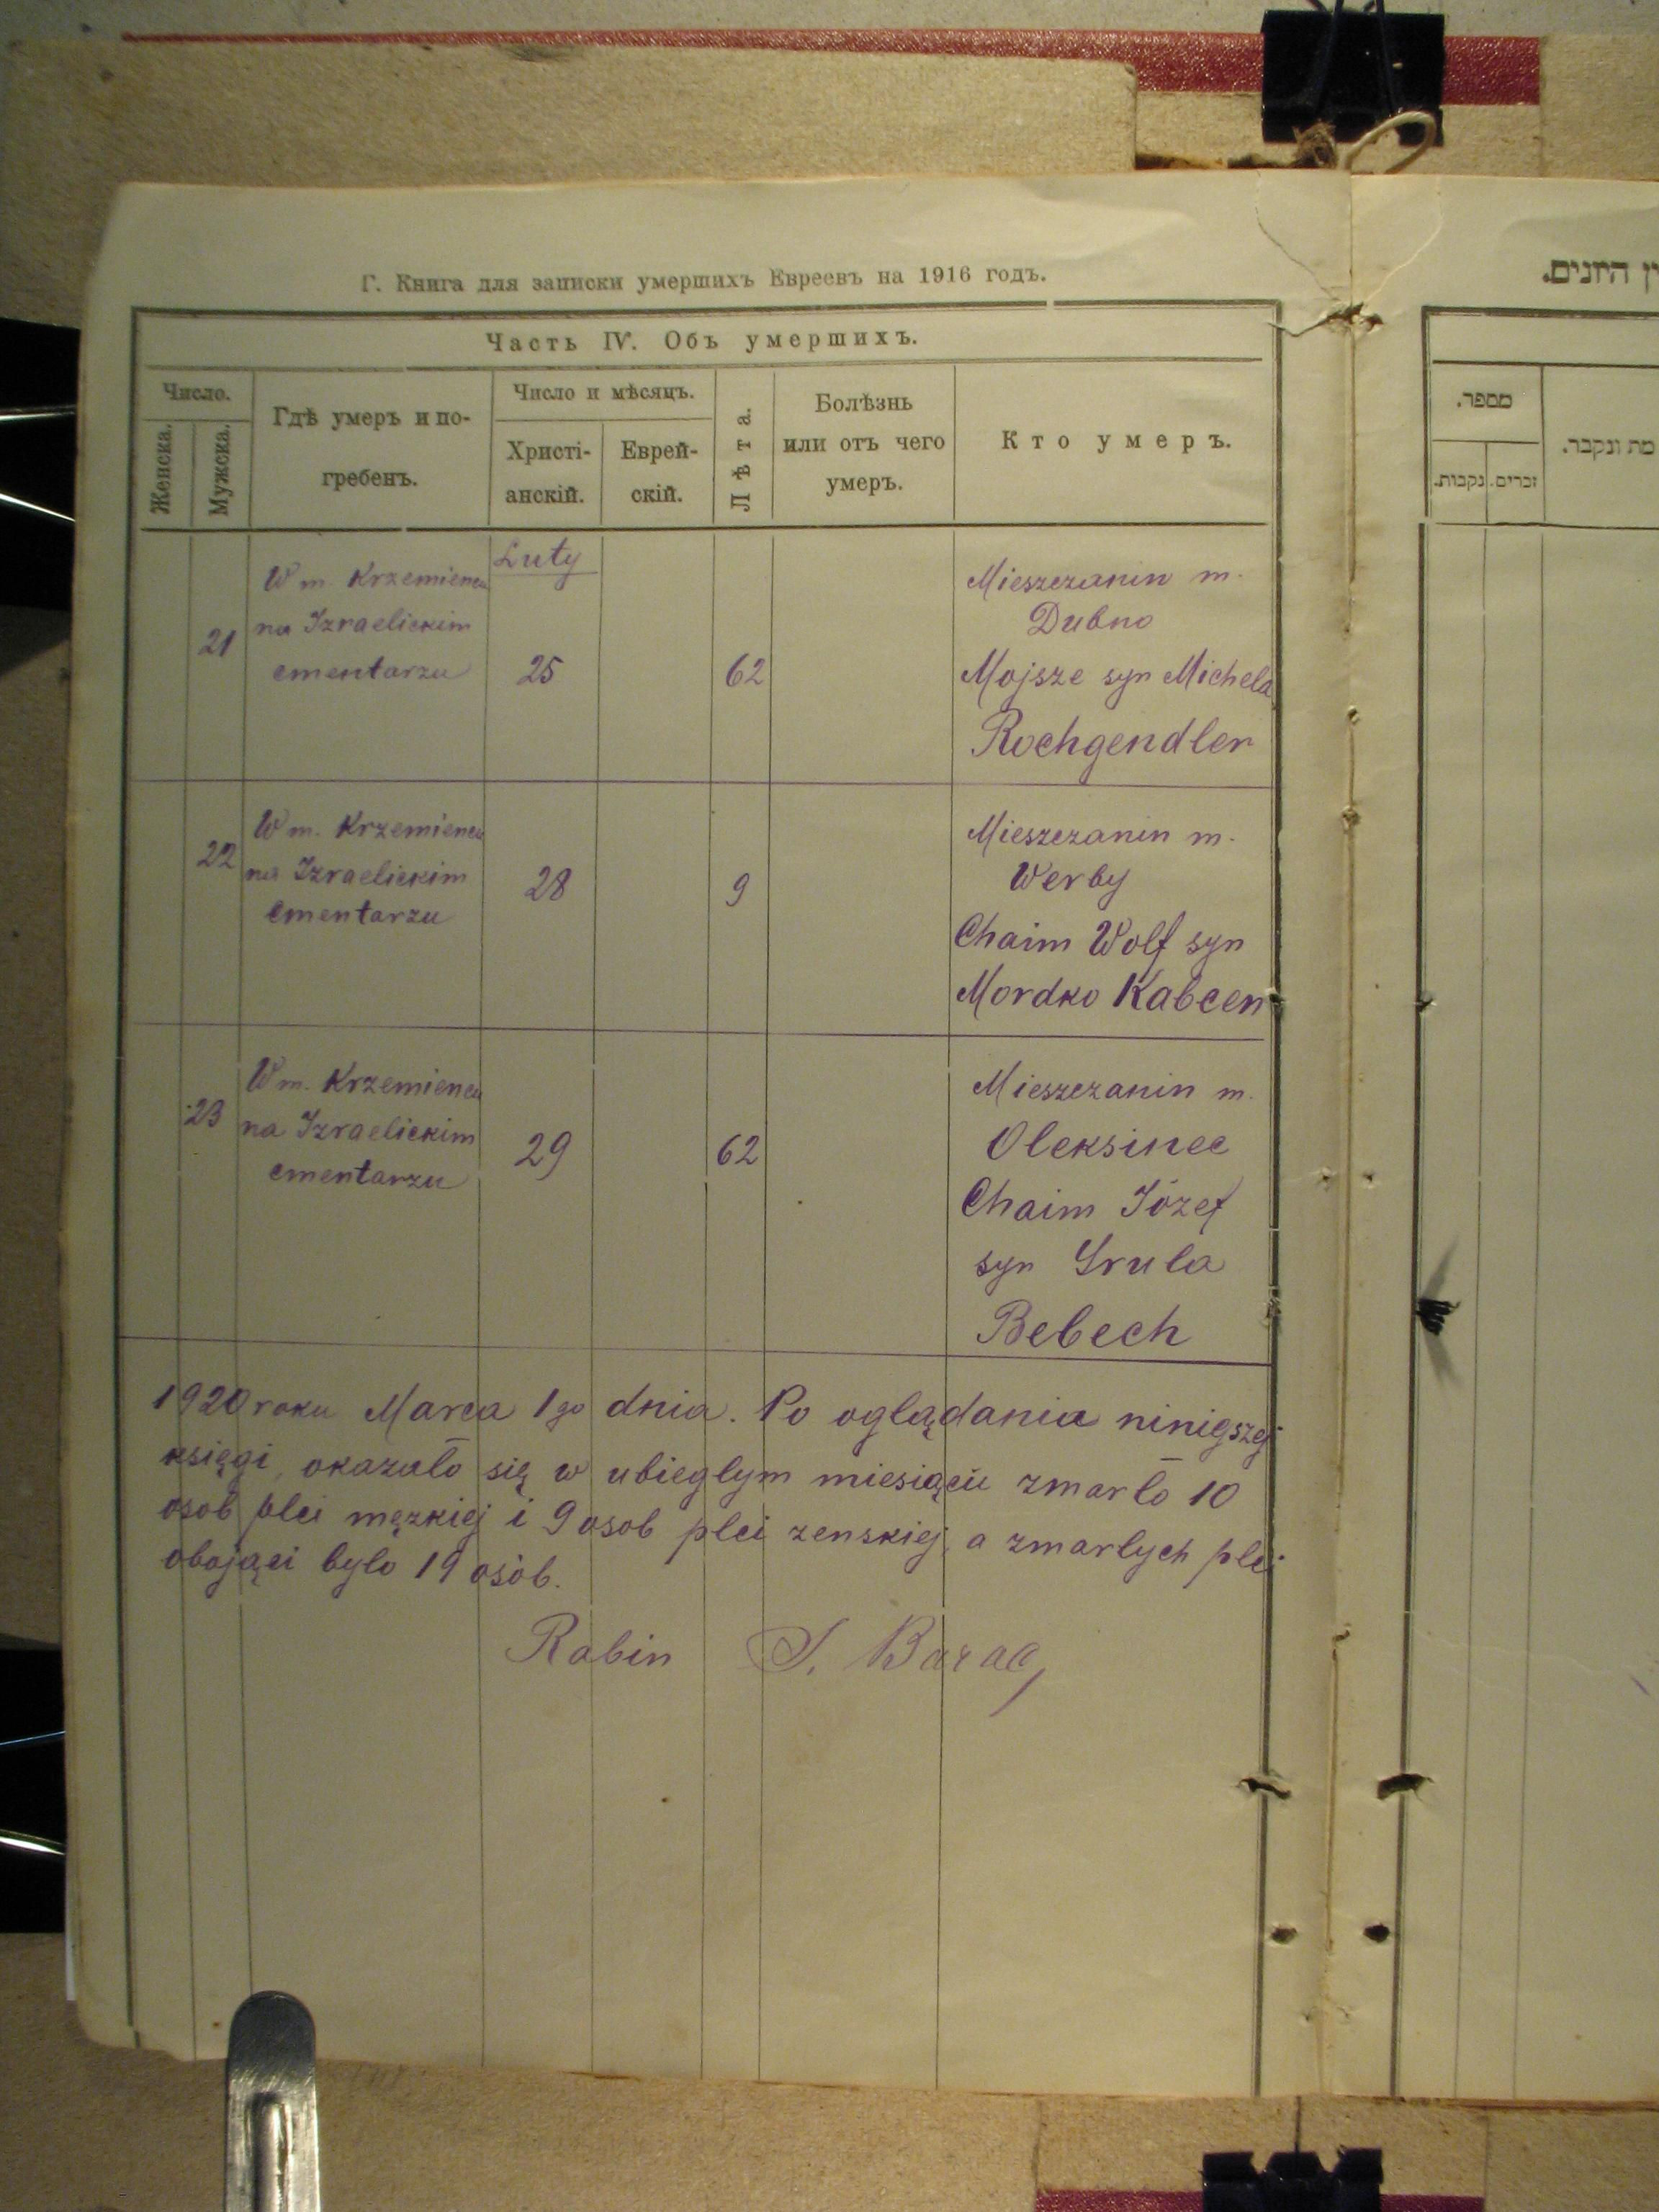 Г. Книга для записки умершихъ Евреевъ на 1916 годъ.
Часть IV. Объ умершихъ.
Число.
Женска.
Мужска.
Гдѣ умеръ и по-
гребенъ.
Число и мѣсяцъ.
Христі-
анскій.
Еврей-
скій.
Лѣта.
Болѣзнь
или отъ чего
умеръ.
Кто умеръ.
Luty
21
W m. Krzemiencu
na Izraelickim
cmentarzu
25
62
Mieszczanin m.
Dubno
Mojsze syn Michela
Rochgendler
22
W m. Krzemiencu
na Izraelickim
cmentarzu
28
9
Mieszczanin m.
Werby
Chaim Wolf syn
Mordko Kabcen
23
W m. Krzemiencu
na Izraelickim
cmentarzu
29
62
Mieszczanin m.
Oleksinec
Chaim Józef
syn Srula
Bebech
1920 roku Marca 1go dnia. Po oglądania ninigszej
księgi, okazało się w ubieglym miesiącu zmarło 10
osob plci męzkiej i 9 osob plci zenskiej, a zmarlych plci
obojąci bylo 19 osób.
Rabin S. Barac
ין היזנים.
מספר.
נקבות.
זכרים.
מת ונקבר.